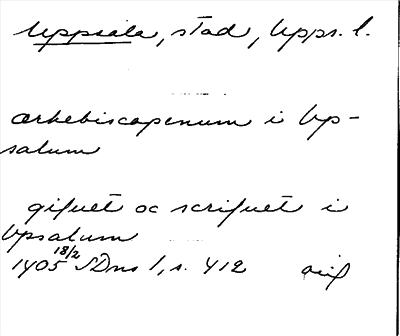 Uppsala, stad, Upps. l.
ærkebiscopenum i Vp-
salum
gifuet oc scrifuet i
Vpsalum
1405 18/2 SDns 1, s. 412